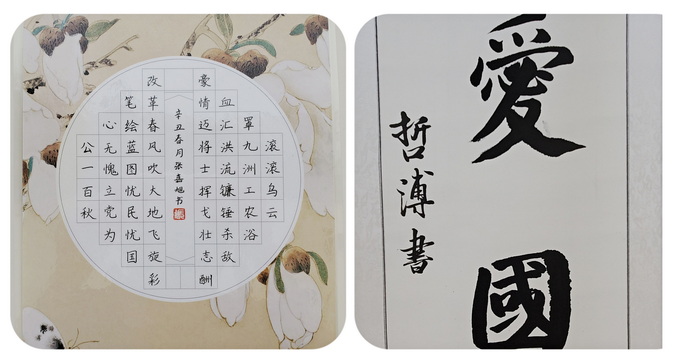 滚滚乌云
罩九洲工农浴
血汇洪流镰锤杀敌
豪情迈将士挥戈壮志酬
辛丑春月张嘉旭书
改革春风吹大地飞旋彩
笔绘蓝图忧民忧国
心无愧立党为
公一百秋
愛國
哲溥書